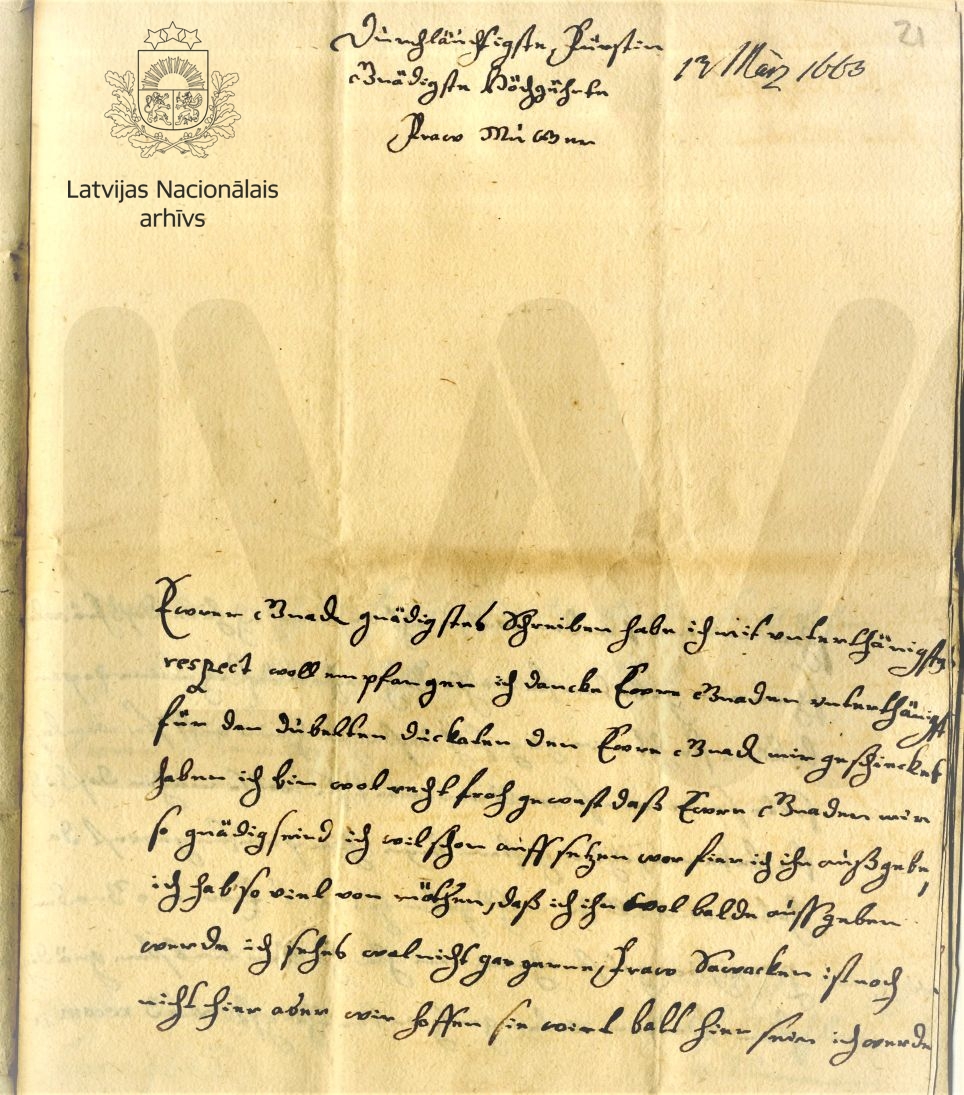 21
Durchläuchtigste Fürstin
Gnädigste Höchgührte
Fraw Mutter
12 März 1663
Latvijas Nacionālais
arhīvs
Ewrer Gnad gnädigstes Schreiben habe ich mit vnterthänigsten
respect woll empfangen ich dancke Ewre Gnaden vnterthänigst
für den dubelten duckaten den Ewre Gnad mir geschiecket
haben ich bin wol recht froh gewest daß Ewre Gnaden mir
so gnädig seind ich wil schon auff setzen wor fier ich ihn außgebe,
ich hab so viel von nöthen, daß ich ihn wol balde aussgeben
werde ich sehes wol nicht gar gerne, Fraw Sawacken ist noch
nicht hier aber wir hoffen sie wirt balt hier sein ich werde